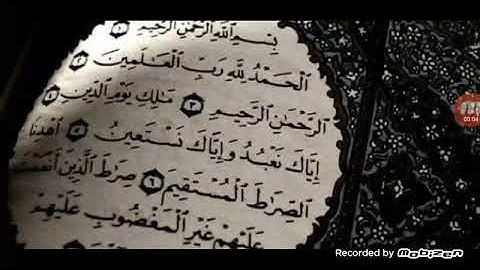 بِسْمِ ٱللَّهِ ٱلرَّحْمَٰنِ ٱلرَّحِيمِ ١
ٱلْحَمْدُ لِلَّهِ رَبِّ ٱلْعَٰلَمِينَ ٢
ٱلرَّحْمَٰنِ ٱلرَّحِيمِ ٣ مَٰلِكِ يَوْمِ ٱلدِّينِ ٤
إِيَّاكَ نَعْبُدُ وَإِيَّاكَ نَسْتَعِينُ ٥ ٱهْدِنَا
ٱلصِّرَٰطَ ٱلْمُسْتَقِيمَ ٦ صِرَٰطَ ٱلَّذِينَ أَنْعَمْتَ
عَلَيْهِمْ غَيْرِ ٱلْمَغْضُوبِ عَلَيْهِمْ
00:04
Recorded by Mobizen